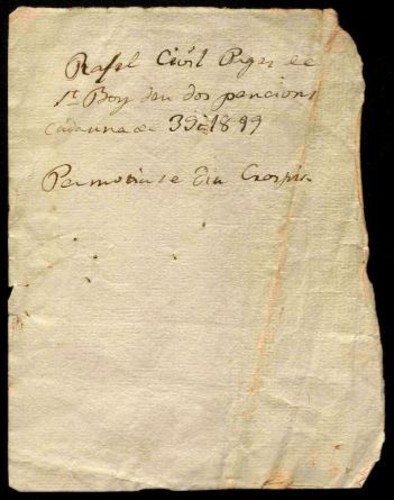 Rafel Civil Pages de
St Boy deu dos pencions
cadauna de 39 i 18 99
Per motiu se diu Crespin